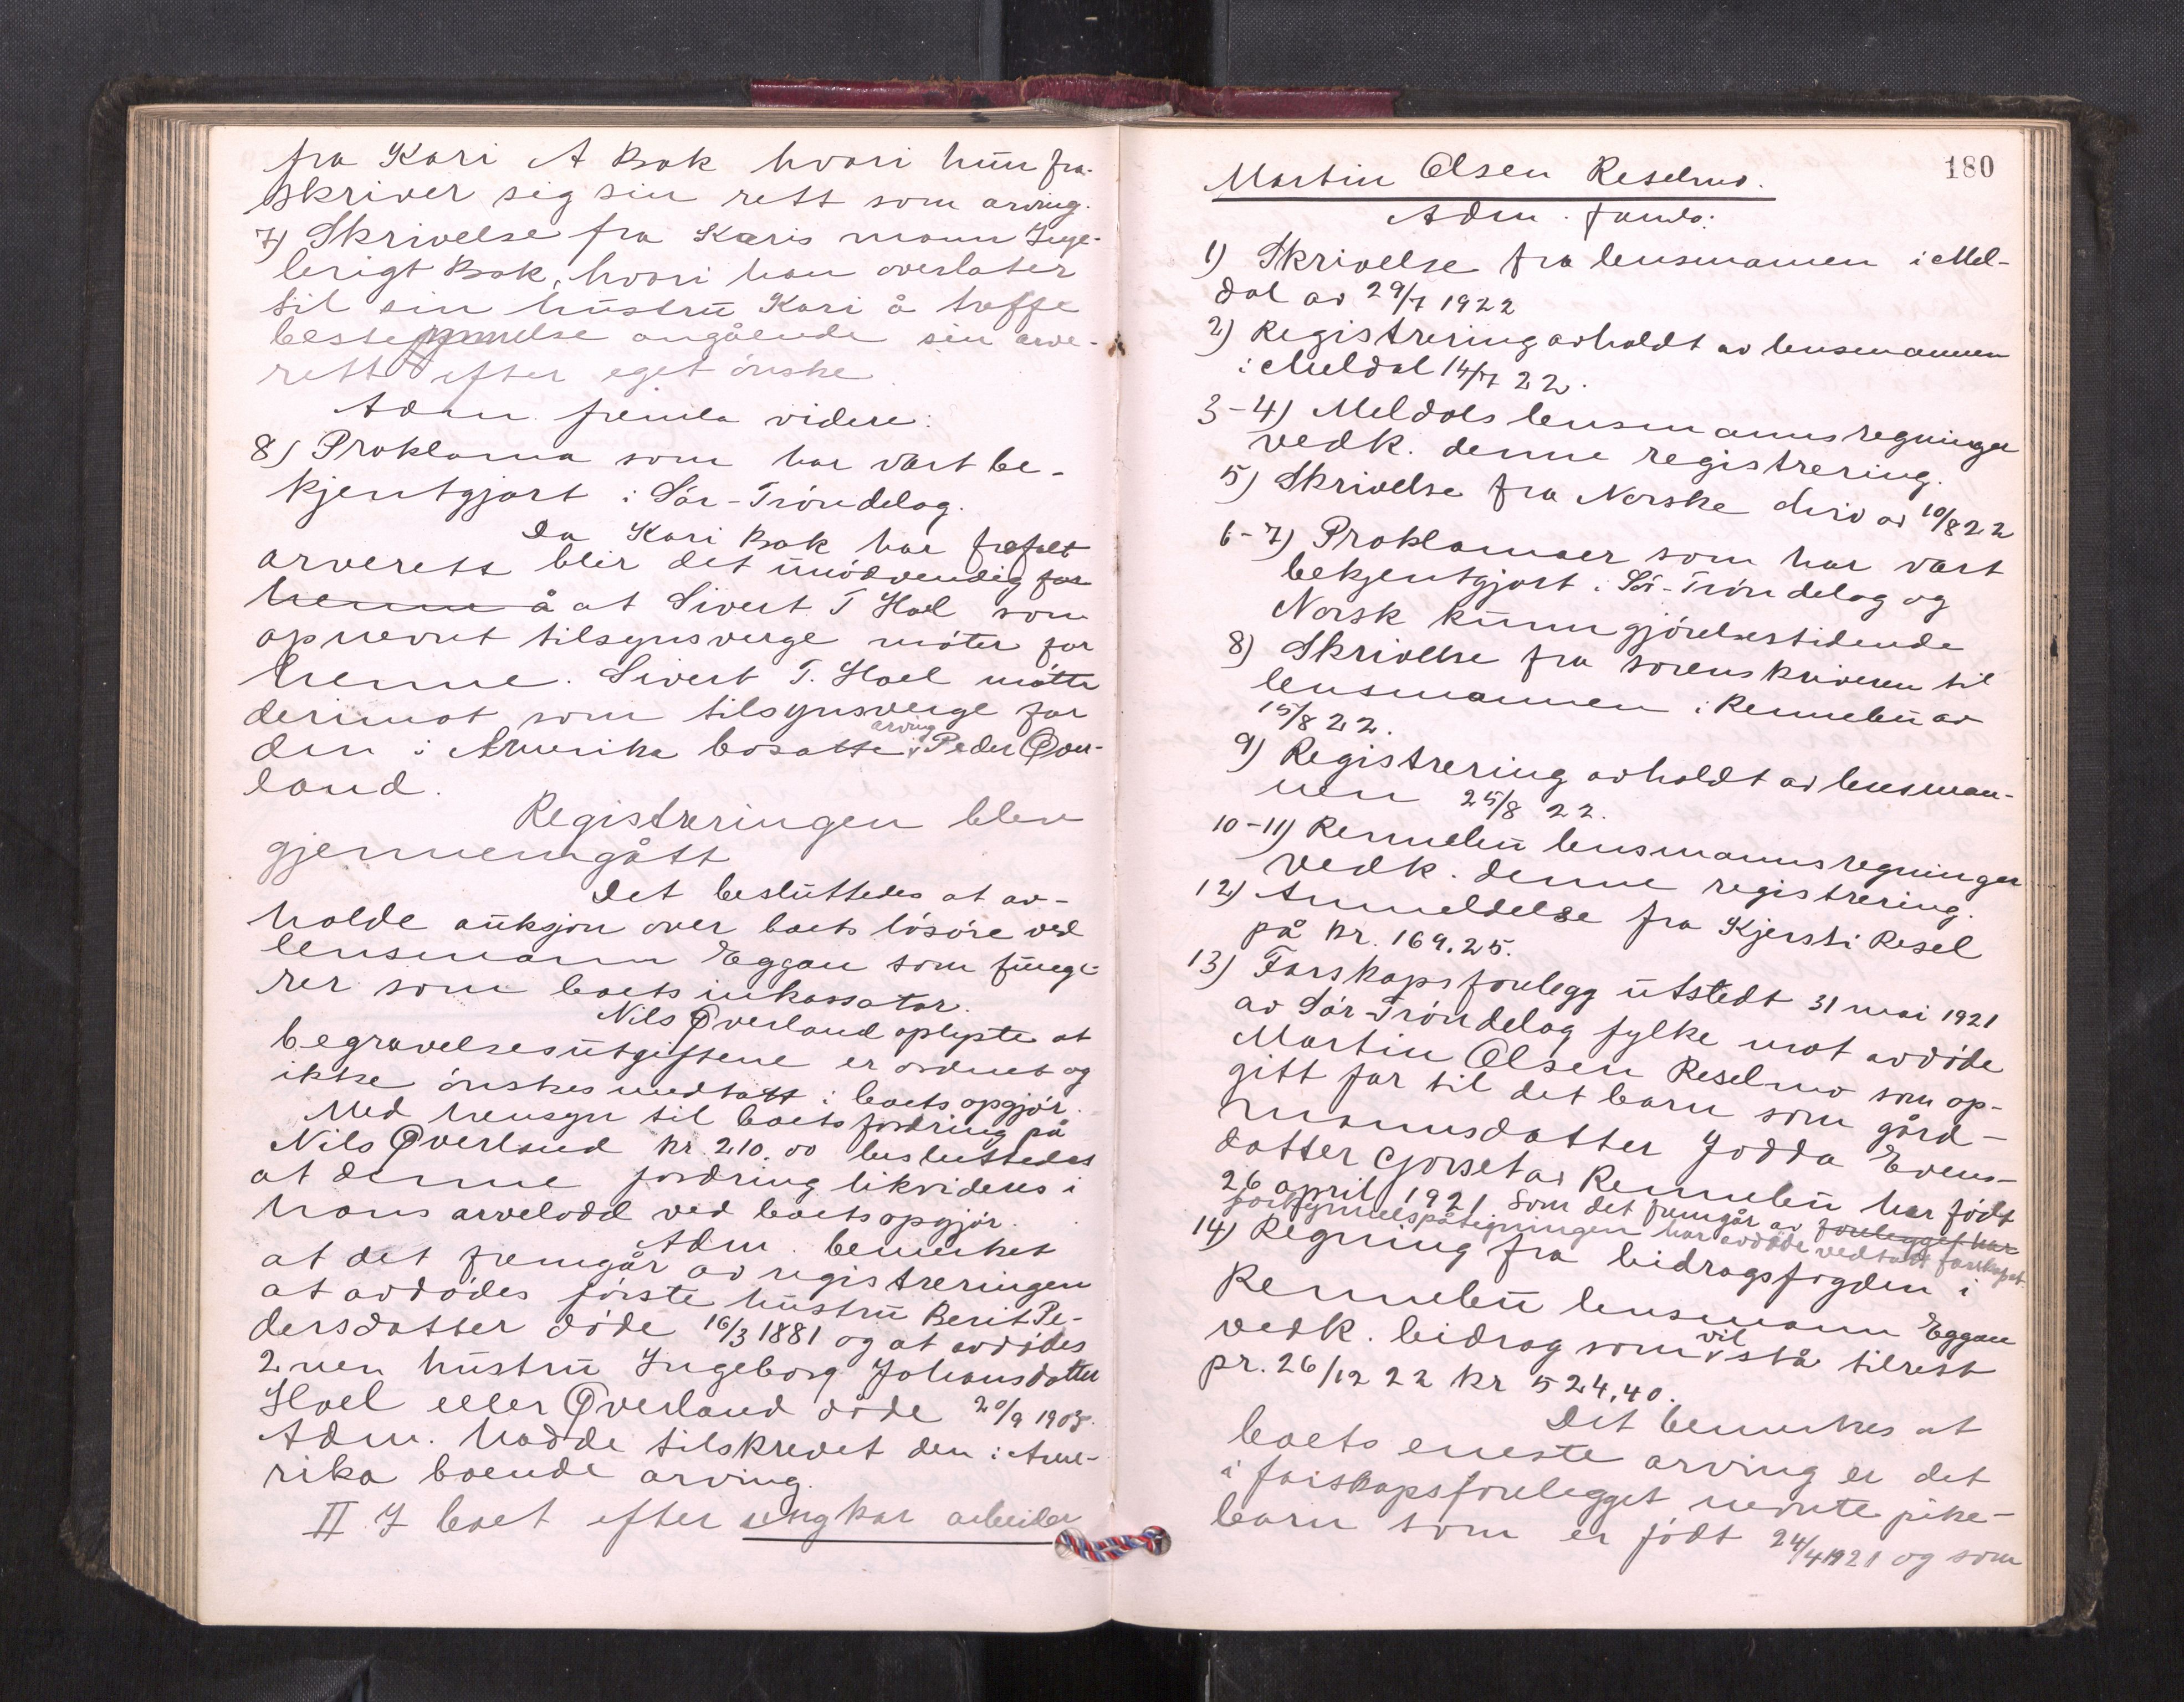 fra Kari A Bak hvori hun fra-
skriver sig sin rett som arving.
7) Skrivelse fra Karis mann Inge-
brigt Bak, hvori han overlater
til sin hustru Kari å treffe
bestemmelse angående sin arve-
rett efter eget ønske.
Adm. fremla videre:
8) Proklama som har vært be-
kjentgjort i Sør-Trøndelag.
Da Kari Bak har frafalt
arverett blir det unødvendig for
henne å at Sivert T Hoel som
opnevnt tilsynsverge møter for
henne. Sivert T. Hoel møtte
derimot som tilsynsverge for
den i Amerika bosatte arving Peder Øver-
land.
Registreringen blev
gjennemgått
Det besluttedes at av-
holde auksjon over boets løsøre ved
lensmann Eggan som funge-
rer som boets inkassator.
Nils Øverland oplyste at
begravelsesutgiftene er ordnet og
ikke ønskes medtatt i boets opgjør.
Med hensyn til boets fordring på
Nils Øverland kr. 210.00 besluttedes
at denne fordring likvideres i
hans arvelodd ved boets opgjør.
Adm. bemerket
at det fremgår av registreringen
at avdødes første hustru Berit Pe-
dersdatter døde 16/3 1881 og at avdødes
2nen hustru Ingeborg Johansdatter
Hoel eller Øverland døde 20/9 1903.
Adm. hadde tilskrevet den i Ame-
rika boende arving.
II I boet efter ungkar arbeider
180
Martin Olsen Reselmo.
Adm. framla:
1) Skrivelse fra lensmannen i Mel-
dal av 29/7 1922
2) Registrering avholdt av lensmannen
i Meldal 14/7 22.
3-4) Meldals lensmannsregninger
vedk. denne registrering.
5) Skrivelse fra Norske Liv av 10/8 22
6-7) Proklamaer som har vært
bekjentgjort i Sør-Trøndelag og
Norsk kunngjørelsestidende
8) Skrivelse fra sorenskriveren til
lensmannen i Rennebu av
15/8 22.
9) Registrering avholdt av lensman-
nen 25/8 22.
10-11) Rennebu lensmannsregninger
vedk. denne registrering.
12) Anmeldelse fra Kjersti Resel
på kr. 169.25.
13) Farskapsforelegg utstedt 31 mai 1921
av Sør-Trøndelag fylke mot avdøde
Martin Olsen Reselmo som op-
gitt far til det barn som gård-
mannsdatter Jodda Evens-
datter Gorset av Rennebu har født
26 april 1921. Som det fremgår av forelegget har
forkynnelsespåtegningen har avdøde vedtatt farskapet.
14) Regning fra bidragsfogden i
Rennebu lensmann Eggan
vedk. bidrag som vil stå tilrest
pr. 26/12 22 kr 524,40.
Det bemerkes at
boets eneste arving er det
i farskapsforelegget nevnte pike-
barn som er født 24/4 1921 og som